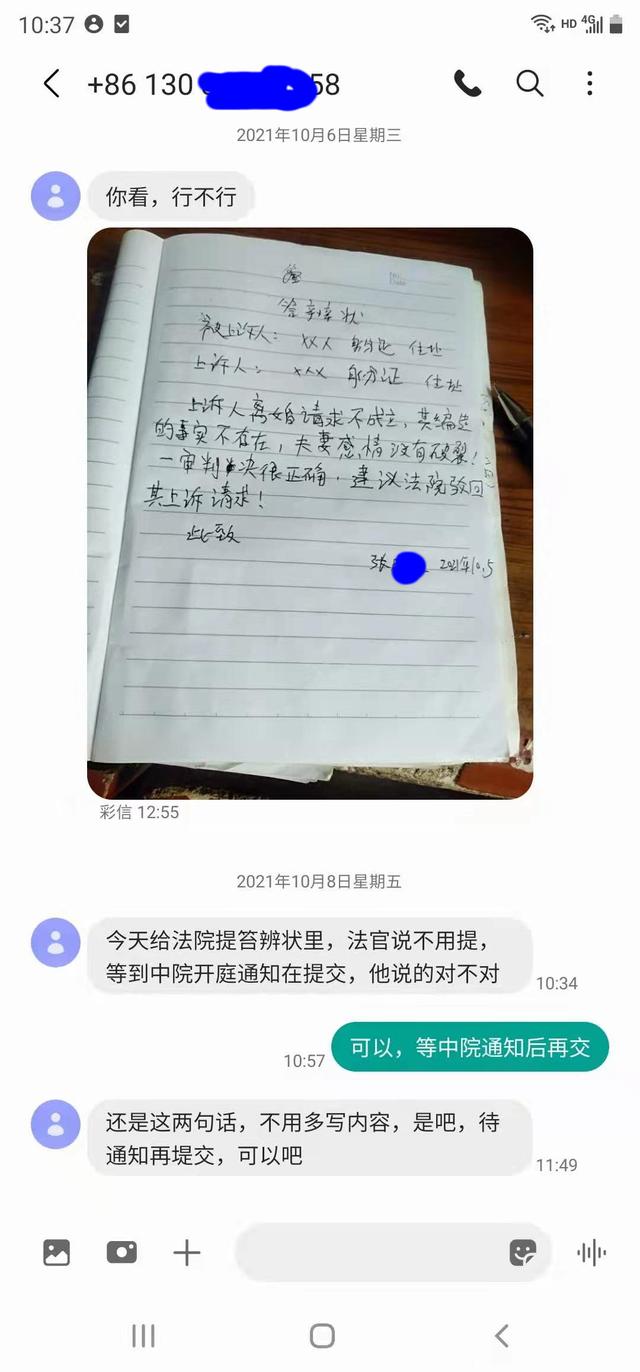 10:37
HD 4G
+86 130 58
2021年10月6日星期三
你看，行不行
答辩状
被上诉人： XXX 身份证 住址
上诉人： XXX 身份证 住址
上诉人离婚请求不成立，其编造
的事实不存在，夫妻感情没有破裂！
一审判决很正确，建议法院驳回
其上诉请求！
此致
张 2021年10.5
彩信 12:55
2021年10月8日星期五
今天给法院提笞辨状里，法官说不用提，
等到中院开庭通知在提交，他说的对不对
10:34
可以，等中院通知后再交
10:57
还是这两句话，不用多写内容，是吧，待
通知再堤交，可以吧
11:49